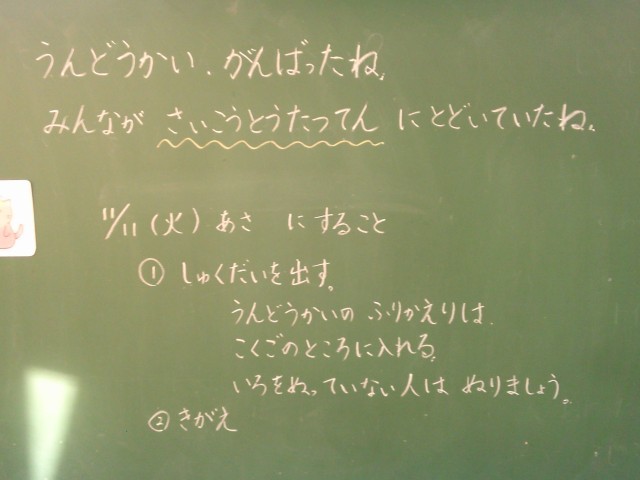 うんどうかい、がんばったね。
みんなが さいこうとうたってん にとどいていたね。
11/11(火) あさ にすること
① しゅくだいを出す。
うんどうかいの ふりかえりは、
こくごのところに入れる。
いろをぬっていない人は ぬりましょう。
② きがえ